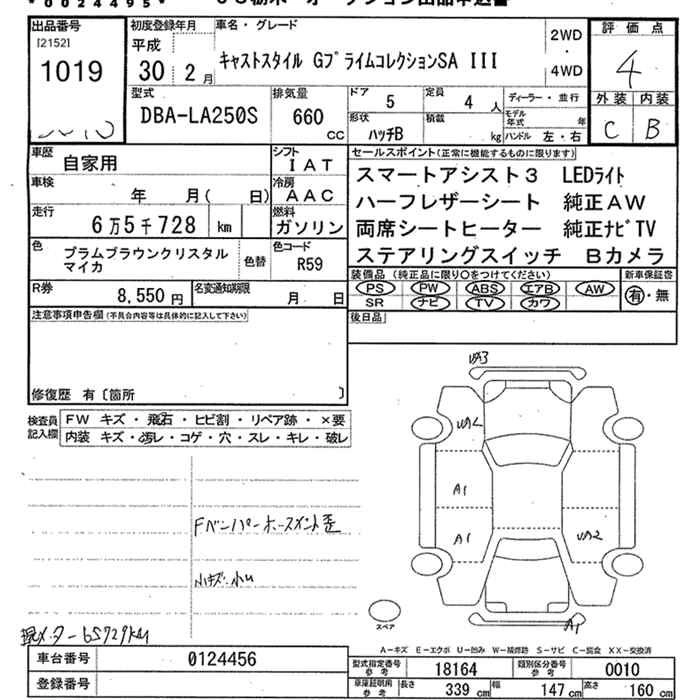 *0024495*
出品番号 初度登録年月 車名・グレード 評価点
[2152]
1019
平成
30年 2月
キャストスタイル GプライムコレクションSA III
2WD
・
4WD
4
外装 内装
C B
型式 排気量 ドア 定員 ディーラー・並行
DBA-LA250S 660 cc 5 4 人
形状 積載 モデル年式 年
ハッチB kg ハンドル 左・右
車歴 自家用 シフト IAT
車検 年 月( 日) 冷房 AAC
走行 6万5千728 km 燃料 ガソリン
色 プラムブラウンクリスタル
マイカ 色替 色コード R59
R券 8,550円 名変通知期限 月 日
セールスポイント(正常に機能するものに限ります)
スマートアシスト3 LEDライト
ハーフレザーシート 純正AW
両席シートヒーター 純正ナビTV
ステアリングスイッチ Bカメラ
装備品 (純正品に限り○をつけてください) 新車保証書
PS PW ABS エアB AW 有・無
SR ナビ TV カワ
後日品
注意事項申告欄(不具合内容等は具体的に記入して下さい)
修復歴 有〔箇所 〕
検査員記入欄
FW キズ・飛石・ヒビ割・リペア跡・×要
内装 キズ・汚レ・コゲ・穴・スレ・キレ・破レ
Fバンパーホースメント歪
小キズ・小凹
現メーター65729km
A1
A1
A1
スペア
A-キズ E-エクボ U-凹み W-補修跡 S-サビ C-腐食 XX-交換済
車台番号 0124456
登録番号
型式指定番号 参考 18164 類別区分番号 参考 0010
車庫証明用 参考 長さ 339 cm 幅 147 cm 高さ 160 cm